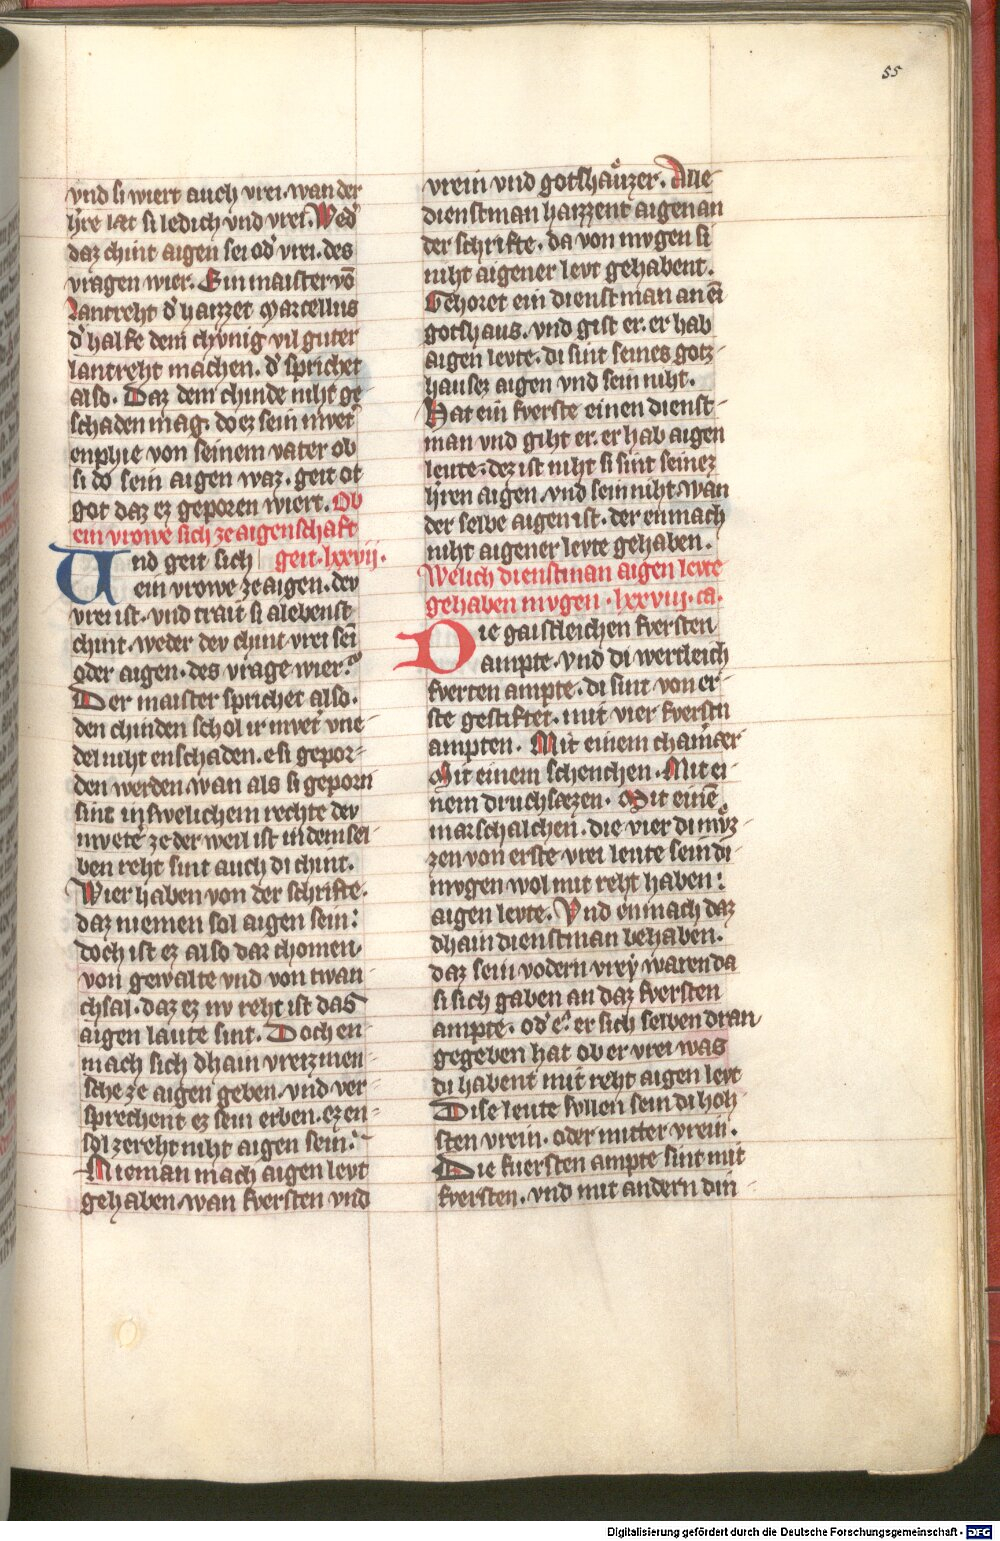 55
vnd si wiert auch vrei. wan der
h̄re lat si ledich vnd vrei. Wed'
daz chint aigen sei od' vrei. des
vragen wier. Ein maister vō
Lantreht d' haizzet Marcellus
d' half dem chvnig vil guter
lantreht machen. d' sprichet
also. Daz dem chinde niht ge
schaden mag. do ez sein mvet'
enphie von seinem vater ob
si do sein aigen waz. geit ot
got daz ez geporen wiert. Ob
ein vrowe sich ze aigenschaft
geit. lxxvij.
Und geit sich
ein vrowe ze aigen. dev
vrei ist. vnd trait si alebenst
chint. weder dev chint vrei sei
oder aigen. des vrage wier?
Der maister sprichet also.
den chinden schol ir mvet' vne-
del niht enschaden. e si gepor-
den werden. wan als si geporn
sint in swelichem rechte dev
mvete' ze der weil ist in dem sel-
ben reht sint auch di chint.
Wier haben von der schrifte.
daz niemen sol aigen sein:
doch ist ez also dar chomen.
von gewalte vnd von twan-
chsal. daz ez nv reht ist das
aigen laute sint. Doch en-
mach sich dhain vreiz men-
sche ze aigen geben. vnd ver-
sprechent ez sein erben. ez en-
sol ze reht niht aigen sein:-
Nieman mach aigen levt
gehaben. wan fversten vnd
vrein vnd gotshaͤuzer. Alle
dienstman haizzent aigen an
der schrifte. da von mvgen si
niht aigener levt gehabent.
Gehoret ein dienstman an ei
gotshaus. vnd gist er. er hab
aigen levte. di sint seines gotz-
hausez aigen vnd sein niht.
Hat ein fverste einen dienst-
man vnd giht er. er hab aigen
leute. dez ist niht si sint seinez
h̄ren aigen. vnd sein niht. wan
der selbe aigen ist. der enmach
niht aigener levte gehaben.
Welich dienstman aigen levte
gehaben mvgen. lxxviij. ca.
Die gaistleichen fversten
ampte. vnd di wertleich
fverten ampte. di sint von er-
ste gestiftet. mit vier fverstn
ampten. Mit einem chamͤrer
Mit einem schenchen. Mit ei-
nem druchsæzen. Mit einē
marschalchen. die vier di mvͤz-
zen von erste vrei leute sein di
mvgen wol mit reht haben:
aigen levte. Vnd enmach daz
dhain dienstman behaben.
daz sein vodern vreÿ waren da
si sich gaben an daz fversten
ampte. od' e. er sich selben dran
gegeben hat ob er vrei was
di habent mit reht aigen levt
Dise leute svllen sein di hoh-
sten vrein. oder mitter vrein.
Die fuersten ampte sint mit
fversten. vnd mit andern din-
Digitalisierung gefördert durch die Deutsche Forschungsgemeinschaft - DFG